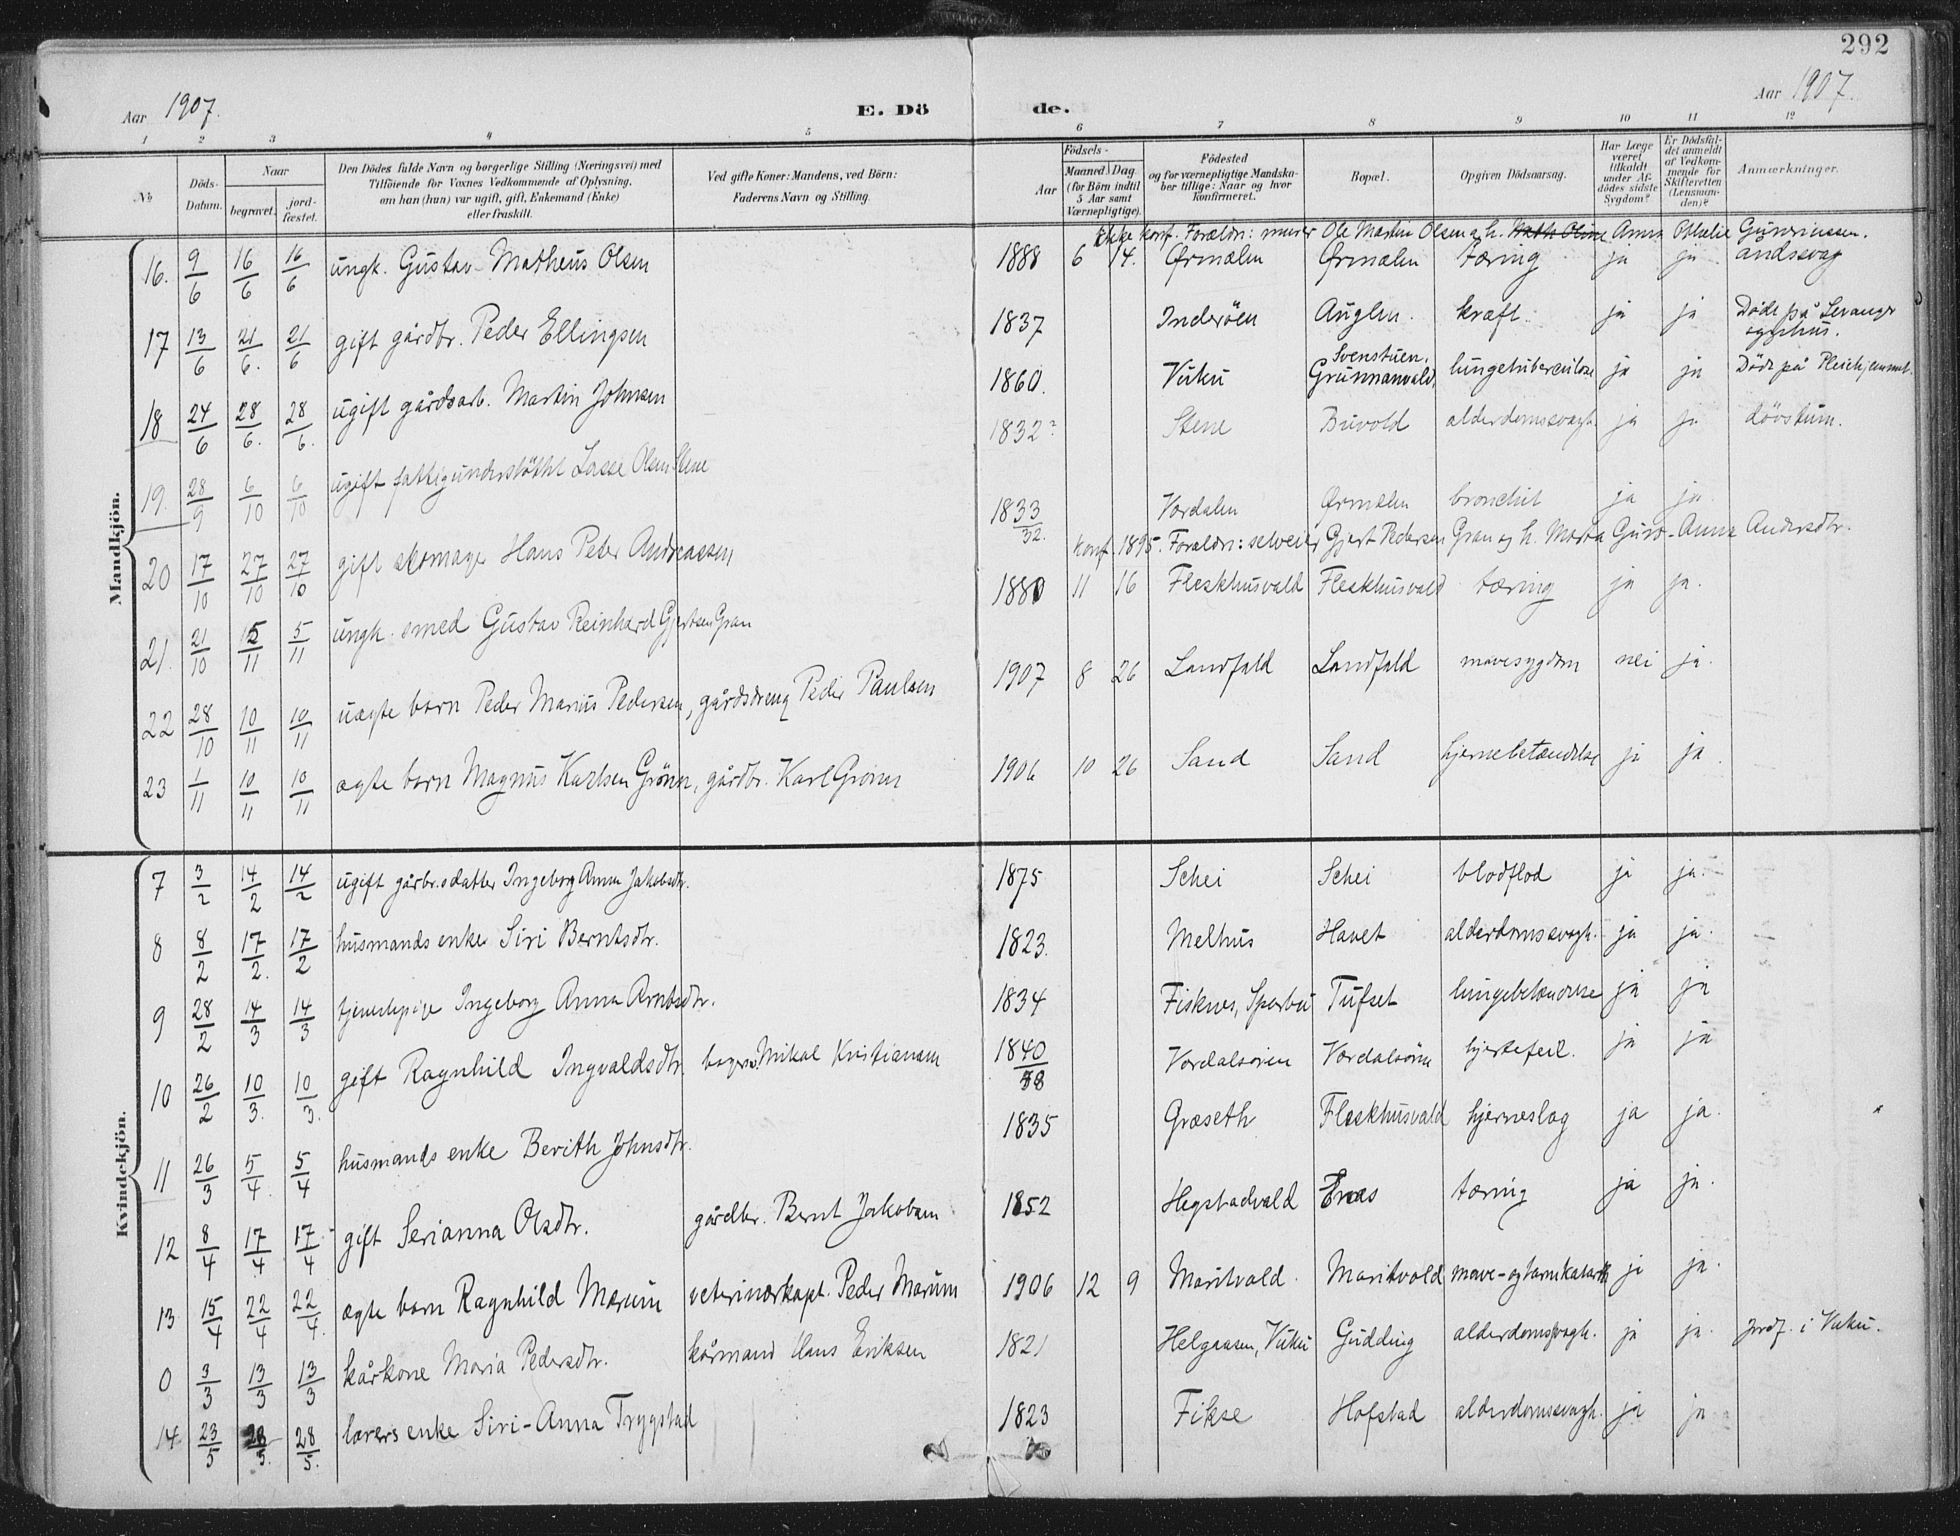 292
Aar 1907. E. Dö de. Aar 1907.
1 2 3 4 5 6 7 8 9 10 11 12
No. Döds-Datum. Naar begravet. jord-fæstet. Den Dödes fulde Navn og borgerlige Stilling (Næringsvei) med Tilföiende for Voxnes Vedkommende af Oplysning, om han (hun) var ugift, gift, Enkemand (Enke) eller fraskilt. Ved gifte Koner: Mandens, ved Börn: Faderens Navn og Stilling. Födsels- Aar Maaned Dag (for Börn indtil 5 Aar samt Værnepligtige). Födested og for værnepligtige Mandskaber tillige: Naar og hvor konfirmeret. Bopæl. Opgiven Dödsaarsag. Har Læge været tilkaldt under Afdödes sidste Sygdom? Er Dödsfaldet anmeldt af Vedkommende for Skifteretten (Lensmanden)? Anmærkninger.
Mandkjön.
Ikke konf. Forældr: murer Ole Martin Olsen og h. Anna Othelie
16. 9/6 16/6 16/6 ungk. Gustav Matheus Olsen 1888 6 14. Ørmælen Ørmælen tæring ja ja andssvag
17 13/6 21/6. 21/6 gift gårdbr. Peder Ellingsen 1837 Inderöen Auglen. kræft. ja ja Döde på Levanger sygehus.
18 24/6 28/6. 28/6. ugift gårdsarb. Martin Johnsen 1860. Vuku Svenstuen, Grunnanvald lungetuberculose ja ja Döde på Pleiehjemmet.
19. 28/9 6/10 6/10 ugift fattigunderstöttet Lasse Olsen Stene 1832? Stene Buvold alderdomssvagh. ja ja dövstum.
20 17/10 27/10 27/10 gift skomager Hans Peter Andreassen 1833/32. Værdalen Ørmælen bronchit ja ja
konf. 1895. Forældr: selveier Gjert Pedersen Gran og h. Marta Guro-Anna Andersdtr.
21. 21/10 5/11 5/11 ungk. smed Gustav Reinhard Gjertsen Gran 1880 11 16 Fleskhusvald Fleskhusvald tæring ja ja.
22 28/10 10/11 10/11 uægte barn Peder Marius Pedersen, gårdsdreng Peder Paulsen 1907 8 26 Landfald Landfald mavesygdom nei ja.
23 1/11 10/11 10/11 ægte barn Magnus Karlsen Grönn, gårdbr. Karl Grönn 1906 10 26 Sand Sand hjernebetændelse ja ja.
Kvindekjön.
7 3/2 14/2 14/2 ugift gårbr.sdatter Ingeborg Anna Jakobsdtr. 1875 Schei Schei blodflod ja ja.
8 8/2 17/2. 17/2 husmands enke Siri Berntsdtr. 1823. Melhus Havet alderdomssvagh. ja ja.
9 28/2 14/3 14/3 tjenestepige Ingeborg Anna Arntsdtr. 1834 Fisknes, Sparbu Tufset lungebetændelse ja ja
10 26/2 10/3. 10/3. gift Ragnhild Ingvaldsdtr. Mikal Kristiansen 1840/38 Værdalsören Værdalsören hjertefeil. ja ja
11 26/3 5/4. 5/4 husmands enke Berith Johnsdtr. 1835 Græseth Fleskhusvald hjerneslag ja ja.
12 8/4 17/4 17/4 gift Serianna Olsdtr. gårdbr. Bernt Jakobsen 1852 Hegstadvald Enes tæring ja ja.
13 15/4 22/4 22/4. ægte barn Ragnhild Marum veterinærkapt. Peder Marum 1906 12 9 Maritvold Maritvold mave-og tarmkatarrh ja ja.
0 3/3 13/3 13/3 kårkone Maria Pedersdtr. kårmand Hans Eriksen 1821 Helgaasen, Vuku Gudding alderdomssvagh. ja ja. jordf. i Vuku.
14 23/5 28/5. 28/5. lærers enke Siri-Anna Trygstad 1823 Fikse Hofstad alderdomssvagh. ja ja